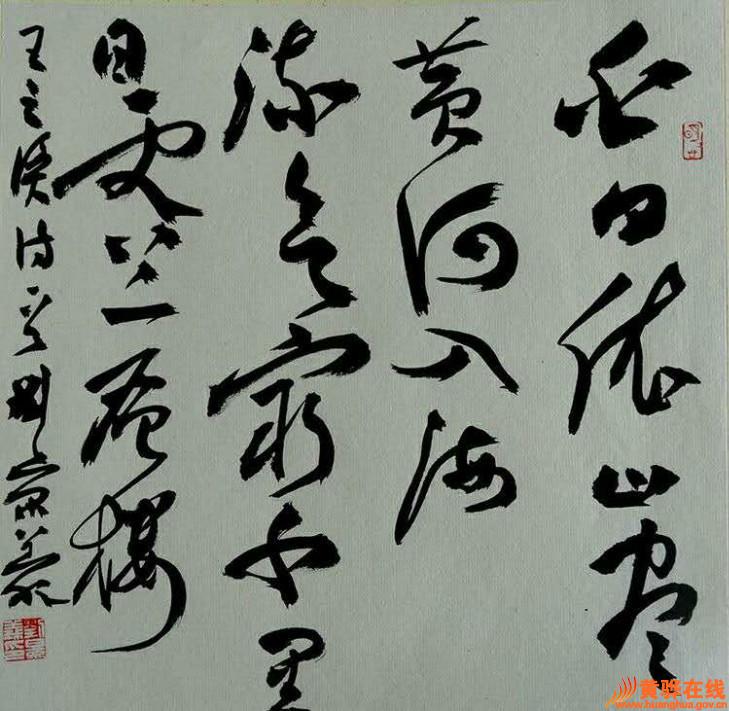 白日依山尽
黄河入海
流欲穷千里
目更上一层楼
王之涣诗一首
黄骅在线
www.huanghua.gov.cn